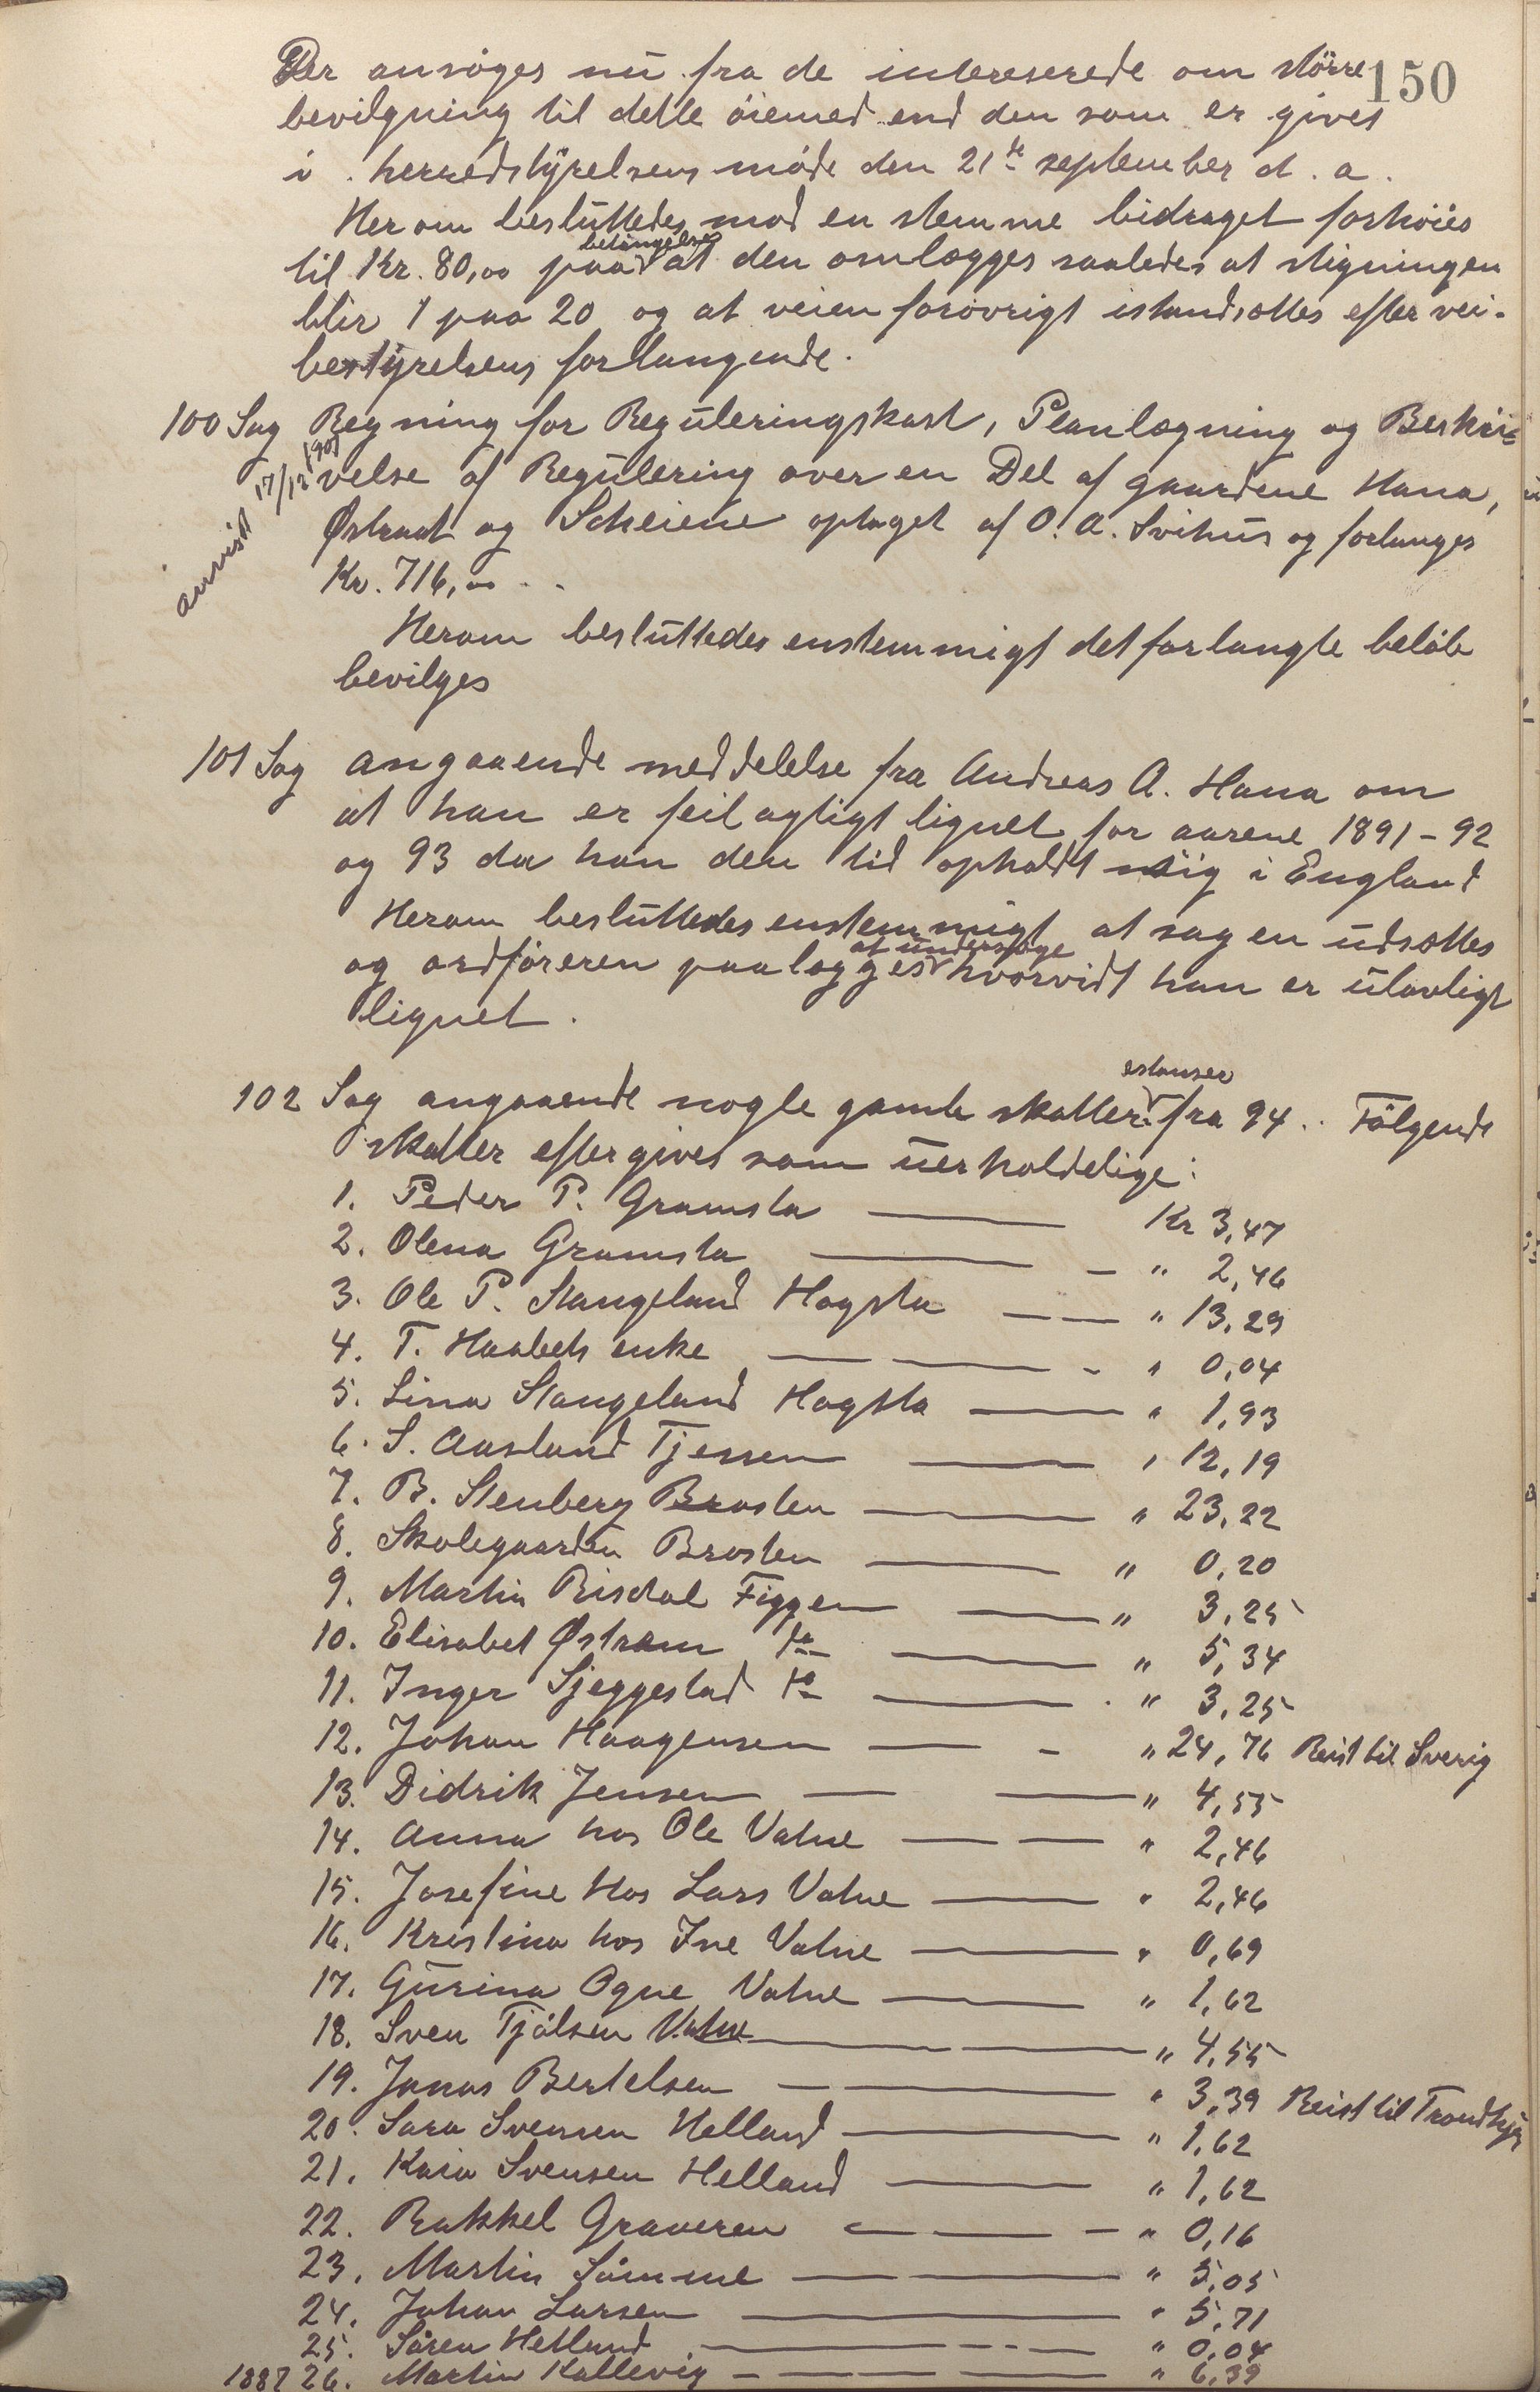 150
Der ansøges nu fra de intereserede om større
bevilgning til dette øiemed end den som er givet
i herredstyrelsens møde den 21de september d. a.
Herom besluttedes mod en stemme bidraget forhøies
betingelse
til Kr. 80,00 paa at den omlægges saaledes at stigningen
blir 1 paa 20 og at veien forøvrigt istandsættes efter vei-
bestyrelsens forlangende.
100 Sag Regning for Reguleringskart, Planlægning og Beskri-
anvist 17/12 1901
velse af Regulering over en Del af gaardene Hana,
Østraat og Scheiene optaget af O. A. Svihus og forlanges
Kr. 716,00
Herom besluttedes enstemmigt det forlangte beløb
bevilges
101 Sag angaaende meddelelse fra Andreas A. Hana om
at han er feilagtigt lignet for aarene 1891-92
og 93 da han den tid opholdt sig i England
Herom besluttedes enstemmigt at sagen udsættes
at undersøge
og ordføreren paalægges hvorvidt han er ulovligt
lignet.
estanser
102 Sag angaaende nogle gamle skatter fra 94. Følgende
skatter eftergives som uerholdelige:
1. Peder P. Gramsta Kr 3,47
2. Olena Gramsta " 2,46
3. Ole P. Stangeland Hogsta " 13,29
4. T. Haabeth enke " 0,04
5. Lina Stangeland Hogsta " 1,93
6. S. Aasland Tjessem " 12,19
7. B. Stenberg Brasten " 23,22
8. Skolegaarden Brasten " 0,20
9. Martin Risdal Figgen " 3,25
10. Elisabet Østrem do " 5,34
11. Inger Sjeggestad do " 3,25
12. Johan Haagensen " 24,76 Reist til Sverig
13. Didrik Jensen " 4,55
14. Anna hos Ole Vatne " 2,46
15. Josefine hos Lars Vatne " 2,46
16. Kristina hos Ive Vatne " 0,69
17. Gurina Ogne Vatne " 1,62
18. Sven Tjølsen Vatne " 4,55
19. Jonas Bertelsen " 3,39 Reist til Trondhjem
20. Sara Svensen Helland " 1,62
21. Kaia Svensen Helland " 1,62
22. Rakkel Graveren " 0,16
23. Martin Sømme " 5,05
24. Johan Larsen " 5,71
25. Søren Hetland " 0,04
1887 26. Martin Kallevig " 6,39